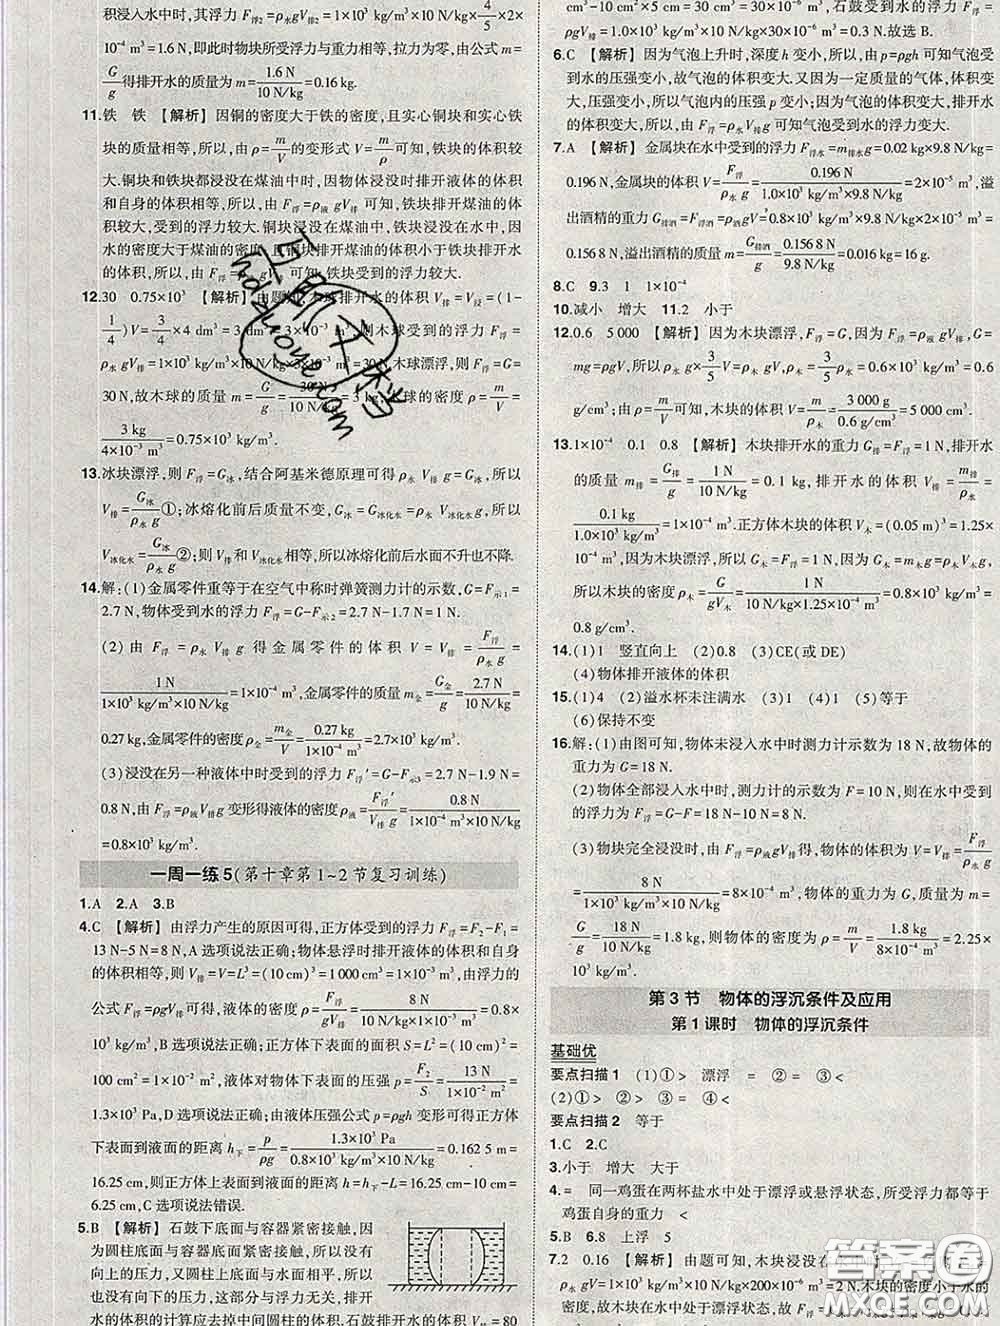 积浸入水中时,其浮力 F浮2 = ρ水 gV排2 = 1×10³ kg/m³×10 N/kg×4/5×2×
10⁻⁴ m³=1.6 N,即此时物块所受浮力与重力相等,拉力为零.由公式 m=
G/g得排开水的质量为 m=1.6 N/10 N/kg=0.16 kg.
11.铁 铁 【解析】因铜的密度大于铁的密度,且实心铜块和实心铁
块的质量相等,所以,由 ρ=m/V的变形式 V=m/ρ可知,铁块的体积较
大.铜块和铁块都浸没在煤油中时,因物体浸没时排开液体的体积
和自身的体积相等,所以,由 F浮=ρ液 gV排可知,铁块排开煤油的体
积较大,受到的浮力较大.铜块浸没在煤油中,铁块浸没在水中,因
水的密度大于煤油的密度,且铜块排开煤油的体积小于铁块排开水
的体积,所以,由 F浮=ρ液 gV排可知,铁块受到的浮力较大.
12.30 0.75×10³ 【解析】由题知,木球排开水的体积 V排=V浸=(1-
1/4)V=3/4×4 dm³=3 dm³=3×10⁻³ m³,则木球受到的浮力 F浮=
ρ水 gV排=1×10³ kg/m³×10 N/kg×3×10⁻³ m³=30 N.木球漂浮,则 F浮=G=
30 N,故木球的质量 m=G/g=30 N/10 N/kg=3 kg,木球的密度 ρ木=m/V=
3 kg/4×10⁻³ m³=0.75×10³ kg/m³.
13.冰块漂浮,则 F浮=G冰,结合阿基米德原理可得 ρ水 V排 g=G冰,所以
V排=G冰/ρ水 g①;冰熔化前后质量不变,G冰=G冰化水=ρ水 V冰化水g,所以
V冰化水=G冰/ρ水 g②;则 V排和 V冰化水相等,所以冰熔化前后水面不升也不降.
14.解:(1)金属零件重等于在空气中称时弹簧测力计的示数,G=F示1=
2.7 N,物体受到水的浮力 F浮=G-F示2=2.7 N-1.7 N=1 N.
(2)由 F浮=ρ水 V排 g 得金属零件的体积 V=V排=F浮/ρ水 g=
1 N/1×10³ kg/m³×10 N/kg=1×10⁻⁴ m³,金属零件的质量 m金=G金/g=2.7 N/10 N/kg=
0.27 kg,金属零件的密度 ρ金=m金/V=0.27 kg/1×10⁻⁴ m³=2.7×10³ kg/m³.
(3)浸没在另一种液体中时受到的浮力 F浮′=G-F示3=2.7 N-1.9 N=
0.8 N,由 F浮=ρ液 V排g 变形得液体的密度 ρ液=F浮′/V排 g=0.8 N/1×10⁻⁴ m³×10 N/kg
=0.8×10³ kg/m³.
一周一练 5(第十章第 1~2 节复习训练)
1.A 2.A 3.B
4.C 【解析】由浮力产生的原因可得,正方体受到的浮力 F浮=F2-F1=
13 N-5 N=8 N,A 选项说法正确;物体悬浮时排开液体的体积和自身
的体积相等,则 V排=V=L³=(10 cm)³=1 000 cm³=1×10⁻³ m³,由浮力的
公式 F浮=ρ液 gV排可得,液体的密度 ρ=F浮/gV排=8 N/10 N/kg×1×10⁻³ m³=
0.8×10³ kg/m³,B 选项说法正确;正方体下表面的面积 S=L²=(10 cm)²=
100 cm²=1×10⁻² m²,液体对物体下表面的压强 p=F2/S=13 N/1×10⁻² m²=
1.3×10³ Pa,D 选项说法正确;由液体压强公式 p=ρgh 变形可得正方体
下表面到液面的距离 h下=p/ρg=1.3×10³ Pa/0.8×10³ kg/m³×10 N/kg=0.162 5 m=
16.25 cm,则正方体上表面到液面的距离 h=h下-L=16.25 cm-10 cm=
6.25 cm,C 选项说法错误.
5.B 【解析】石鼓下底面与容器紧密接触,因
为圆柱底面与容器底面紧密接触,所以没有
向上的压力,又因为圆柱上底面与水面相平,所以没有
向下的压力,这部分与浮力无关,排开
水的体积的计算应去掉中间圆柱的体积,石鼓排开水的体积 V排=80
cm³-10 cm²×5 cm=30 cm³=30×10⁻⁶ m³,石鼓受到水的浮力 F浮=
ρ水 gV排=1×10³ kg/m³×10 N/kg×30×10⁻⁶ m³=0.3 N.故选 B.
6.C 【解析】因为气泡上升时,深度 h 变小,所以,由 p=ρgh 可知气泡受
到水的压强变小,故气泡的体积变大.又因为一定质量的气体,体积变
大,压强变小,所以气泡内的压强 p 变小;因为气泡的体积变大,排开水
的体积变大,所以由 F浮=ρ水 V排g 可知气泡受到水的浮力变大.
7.A 【解析】金属块在水中受到的浮力 F浮水=m排水g=0.02 kg×9.8 N/kg=
0.196 N,金属块的体积 V=F浮/ρ水 g=0.196 N/1.0×10³ kg/m³×9.8 N/kg=2×10⁻⁵ m³,溢
出酒精的重力 G排酒=F浮酒=ρ酒gV=0.8×10³ kg/m³×9.8 N/kg×2×10⁻⁵ m³=
0.156 8 N,溢出酒精的质量 m酒=G排酒/g=0.156 8 N/9.8 N/kg=0.016 kg=16 g.
8.C 9.3 1 1×10⁻⁴
10.减小 增大 11.2 小于
12.0.6 5 000 【解析】因为木块漂浮,所以 F浮=G,因为 F浮=ρ水 gV排,G=
mg=ρgV,所以 ρ水 g×3/5 V=ρgV,所以 ρ=3/5ρ水=0.6×10³ kg/m³=
0.6 g/cm³;由 ρ=m/V可知,木块的体积 V=m/ρ=3 000 g/0.6 g/cm³=5 000 cm³.
13.1×10⁻⁴ 0.1 0.8 【解析】木块排开水的重力 G排=F浮=1 N,排开水
的质量 m排=G排/g=1 N/10 N/kg=0.1 kg,排开水的体积 V排=m排/ρ水=
0.1 kg/1.0×10³ kg/m³=1×10⁻⁴ m³.正方体木块的体积 V木=(0.05 m)³=1.25×
10⁻⁴ m³,因为木块漂浮,所以 G木=F浮=1 N,因为 G木=m木g=ρ木 gV木,
所以木块的密度 ρ木=G/gV木=1 N/10 N/kg×1.25×10⁻⁴ m³=0.8×10³ kg/m³=
0.8 g/cm³.
14.(1)1 竖直向上 (2)0.8 (3)CE(或 DE)
(4)物体排开液体的体积
15.(1)4 (2)溢水杯未注满水 (3)1 (4)1 (5)等于
(6)保持不变
16.解:(1)由图可知,物体未浸入水中时测力计示数为 18 N,故物体的
重力为 G=18 N.
(2)物体全部浸入水中时,测力计的示数为 F=10 N,则在水中受到
的浮力为 F浮=G-F=18 N-10 N=8 N.
(3)物块完全浸没时,由 F浮=ρ水 gV排可得,物体的体积为 V=V排=F浮/ρ水 g=
8 N/1×10³ kg/m³×10 N/kg=8×10⁻⁴ m³,物体的重力为 G,物体的质量为 m=
G/g=18 N/10 N/kg=1.8 kg,则物体的密度为 ρ=m/V=1.8 kg/8×10⁻⁴ m³=2.25×
10³ kg/m³.
第 3 节 物体的浮沉条件及应用
第 1 课时 物体的浮沉条件
基础优
要点扫描 1 (1)①> 漂浮 = ②= ③<
(2)①> ②> ③= ④<
要点扫描 2 等于
1.C 2.C
3.小于 增大 大于
4.= 同一鸡蛋在两杯盐水中处于漂浮或悬浮状态,所受浮力都等于
鸡蛋自身的重力 <
5.B 6.8 上浮 5
7.2 0.16 【解析】由题可知,木块浸没在
ρ水 gV=1×10³ kg/m³×10 N/kg×200×10⁻⁶ m³=2 N.木块的密度小于水的
密度,所以松手后木块上浮,最终处于漂浮状态,故
答案圈
MXQE.COM